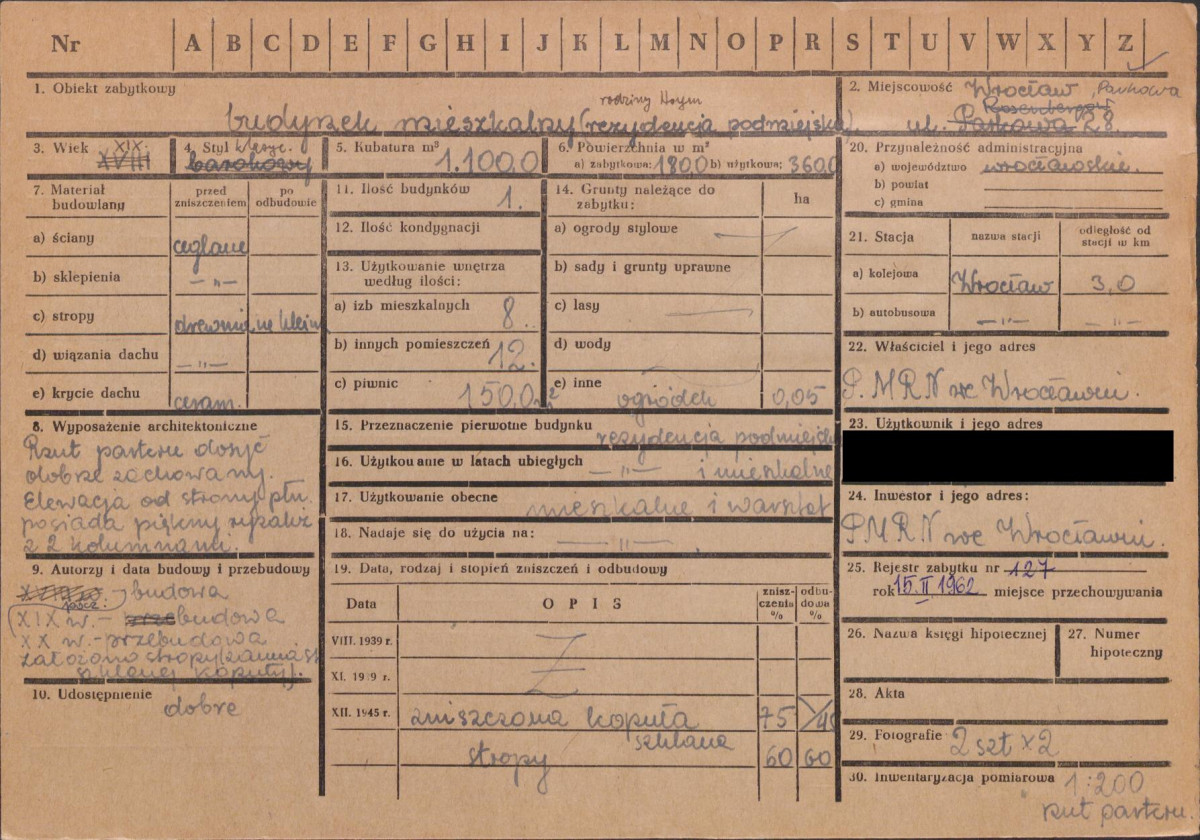 Nr A B C D E F G H I J K L M N O P R S T U V W X Y Z
1. Obiekt zabytkowy
rodziny Hoym
budynek mieszkalny (rezydencja podmiejska).
2. Miejscowość Wrocław, Parkowa
Rosenbergów
ul. Parkowa 28
3. Wiek XIX.
XVIII
4. Styl klasyc.
barokowy
5. Kubatura m³
1.100,0
6. Powierzchnia w m²
a) zabytkowa: 180,0 b) użytkowa: 360,0
7. Materiał budowlany
przed zniszczeniem
po odbudowie
a) ściany ceglane
b) sklepienia —"—
c) stropy drewniane kleina
d) wiązania dachu —"—
e) krycie dachu ceram.
8. Wyposażenie architektoniczne
Rzut parteru dosyć
dobrze zachowany.
Elewacja od strony płn.
posiada piękny ryzalit
z 2 kolumnami.
9. Autorzy i data budowy i przebudowy
- budowa
XIX w. - przebudowa
XX w. - przebudowa
założono stropy (zamiast
szklanej kopuły).
10. Udostępnienie
dobre
11. Ilość budynków
1.
12. Ilość kondygnacji
13. Użytkowanie wnętrza
według ilości:
a) izb mieszkalnych 8.
b) innych pomieszczeń 12.
c) piwnic 150,0 m²
14. Grunty należące do
zabytku: ha
a) ogrody stylowe —
b) sady i grunty uprawne
c) lasy —
d) wody
e) inne ogródek 0,05
15. Przeznaczenie pierwotne budynku rezydencja podmiejska
16. Użytkowanie w latach ubiegłych —"— i mieszkalne
17. Użytkowanie obecne mieszkalne i warsztat
18. Nadaje się do użycia na: —"—
19. Data, rodzaj i stopień zniszczeń i odbudowy
Data OPIS znisz-czenia % odbu-dowa %
VIII. 1939 r.
XI. 1939 r.
XII. 1945 r. zniszczona kopuła 75 /40
szklana
stropy 60 60
20. Przynależność administracyjna
a) województwo wrocławskie.
b) powiat
c) gmina
21. Stacja nazwa stacji odległość od stacji w km
a) kolejowa Wrocław 3,0
b) autobusowa —"— —"—
22. Właściciel i jego adres
P.M.R.N we Wrocławiu.
23. Użytkownik i jego adres
24. Inwestor i jego adres:
PMRN we Wrocławiu.
25. Rejestr zabytku nr 127
rok 15.II 1962 miejsce przechowywania
26. Nazwa księgi hipotecznej
27. Numer hipoteczny
28. Akta
29. Fotografie 2 szt x 2
30. Inwentaryzacja pomiarowa 1:200
rzut parteru.